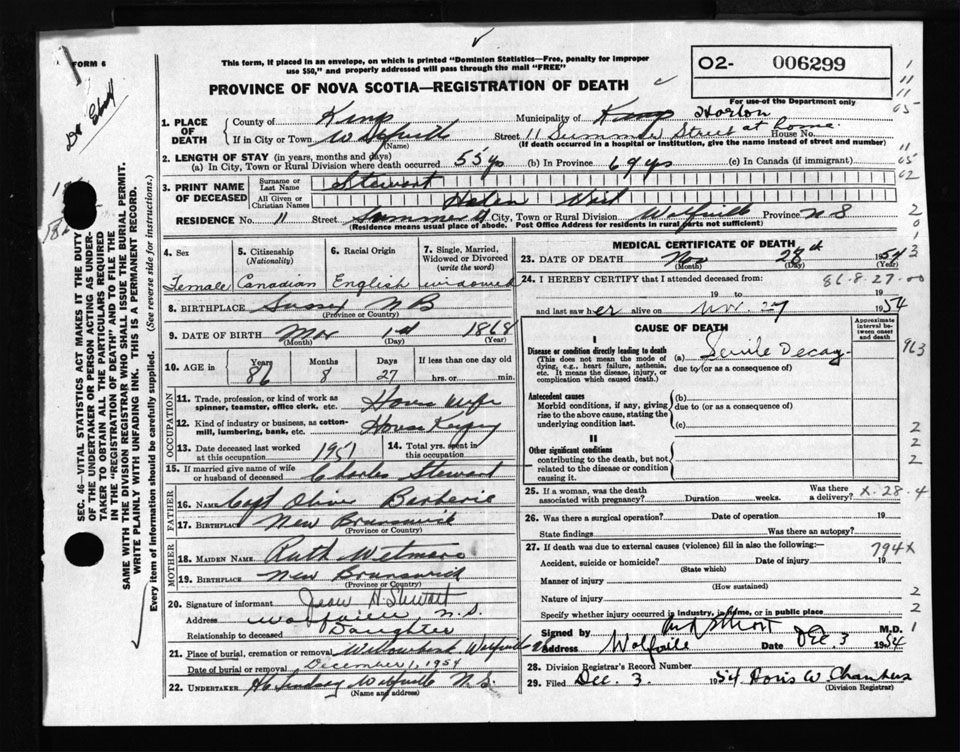 FORM 6
This form, if placed in an envelope, on which is printed "Dominion Statistics—Free, penalty for improper
use $50," and properly addressed will pass through the mail "FREE"
02- 006299
PROVINCE OF NOVA SCOTIA—REGISTRATION OF DEATH
For use of the Department only
1. PLACE OF DEATH
County of Kings Municipality of Kings Horton
If in City or Town Wolfville Street 11 Summer Street at home House No.
(Name) (If death occurred in a hospital or institution, give the name instead of street and number)
2. LENGTH OF STAY (in years, months and days)
(a) In City, Town or Rural Division where death occurred 55 yrs (b) In Province 69 yrs (c) In Canada (if immigrant)
3. PRINT NAME OF DECEASED
Surname or Last Name Stewart
All Given or Christian Names Helen
RESIDENCE No. 11 Street Summer St City, Town or Rural Division Wolfville Province N S
(Residence means usual place of abode. Post Office Address for residents in rural parts not sufficient)
4. Sex 5. Citizenship (Nationality) 6. Racial Origin 7. Single, Married, Widowed or Divorced (write the word)
Female Canadian English widowed
8. BIRTHPLACE Sussex N B
(Province or Country)
9. DATE OF BIRTH Mar 1st 1868
(Month) (Day) (Year)
10. AGE in Years Months Days If less than one day old
86 8 27 hrs. or min.
OCCUPATION
11. Trade, profession or kind of work as spinner, teamster, office clerk, etc. House Wife
12. Kind of industry or business, as cotton-mill, lumbering, bank, etc. House Keeping
13. Date deceased last worked at this occupation 1951 14. Total yrs. spent in this occupation
15. If married give name of wife or husband of deceased Charles Stewart
FATHER
16. Name Capt Barberie
17. Birthplace New Brunswick
(Province or Country)
MOTHER
18. Maiden Name Ruth Wetmore
19. Birthplace New Brunswick
(Province or Country)
20. Signature of informant Jean H. Stewart
Address Wolfville N.S.
Relationship to deceased Daughter
21. Place of burial, cremation or removal Willowbank Wolfville
Date of burial or removal December 1, 1954
22. Undertaker Lindsay Wolfville N.S.
(Name and address)
MEDICAL CERTIFICATE OF DEATH
23. DATE OF DEATH Nov 28th 1954
(Month) (Day) (Year)
24. I HEREBY CERTIFY that I attended deceased from: 86.8.27.00
19 to 19
and last saw her alive on Nov. 27 1954
CAUSE OF DEATH
Approximate interval between onset and death
I
Disease or condition directly leading to death (a) Senile Decay
(This does not mean the mode of dying, e.g., heart failure, asthenia, etc. It means the disease, injury, or complication which caused death.)
due to (or as a consequence of)
Antecedent causes
Morbid conditions, if any, giving rise to the above cause, stating the underlying condition last.
(b)
due to (or as a consequence of)
(c)
II
Other significant conditions
contributing to the death, but not related to the disease or condition causing it.
25. If a woman, was the death associated with pregnancy? Duration weeks. Was there a delivery? X-28-4
26. Was there a surgical operation? Date of operation 19
State findings Was there an autopsy?
27. If death was due to external causes (violence) fill in also the following:— 794X
Accident, suicide or homicide? Date of injury 19
(State which)
Manner of injury
(How sustained)
Nature of injury
Specify whether injury occurred in industry, in home, or in public place
Signed by M.D.
Address Wolfville Date Dec 3 1954
28. Division Registrar's Record Number
29. Filed Dec. 3. 1954 Doris W. Chambers
(Division Registrar)
SEC. 46—VITAL STATISTICS ACT MAKES IT THE DUTY
OF THE UNDERTAKER OR PERSON ACTING AS UNDER-
TAKER TO OBTAIN ALL THE PARTICULARS REQUIRED
IN THE "REGISTRATION OF DEATH" AND TO FILE THE
SAME WITH THE DIVISION REGISTRAR WHO SHALL ISSUE THE BURIAL PERMIT.
WRITE PLAINLY WITH UNFADING INK. THIS IS A PERMANENT RECORD.
Every item of information should be carefully supplied. (See reverse side for instructions.)